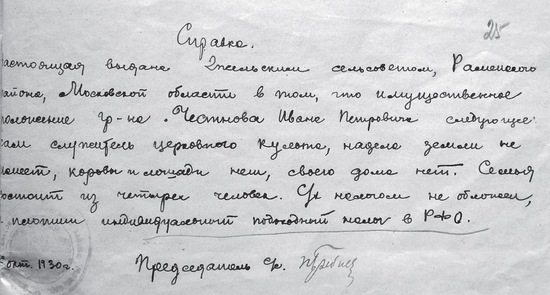 25
Справка.
настоящая выдана Гжельским сельсоветом, Раменского
района, Московской области в том, что имущественное
положение гр-на Честнова Ивана Петровича следующе:
сам служитель церковного культа, надела земли не
имеет, коровы и лошади нет, своего дома нет. Семья
состоит из четырех человек. С/х налогом не обложен,
а платит индивидуальный подоходный налог в РФО.
окт. 1930 г.
Председатель